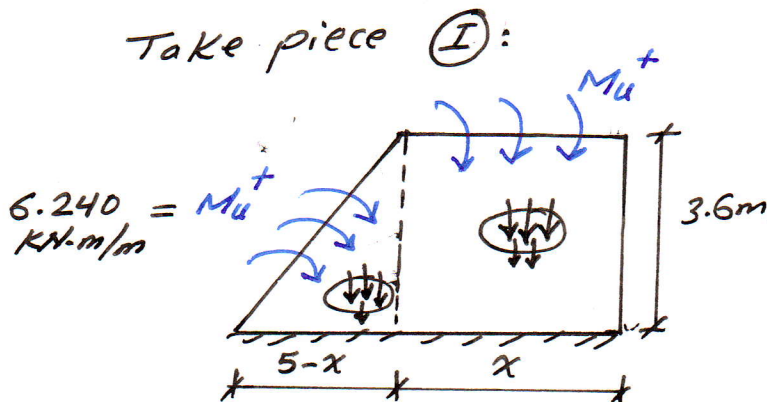 Take piece I :
Mu+
6.240 = Mu+
KN.m/m
3.6m
5-x
x